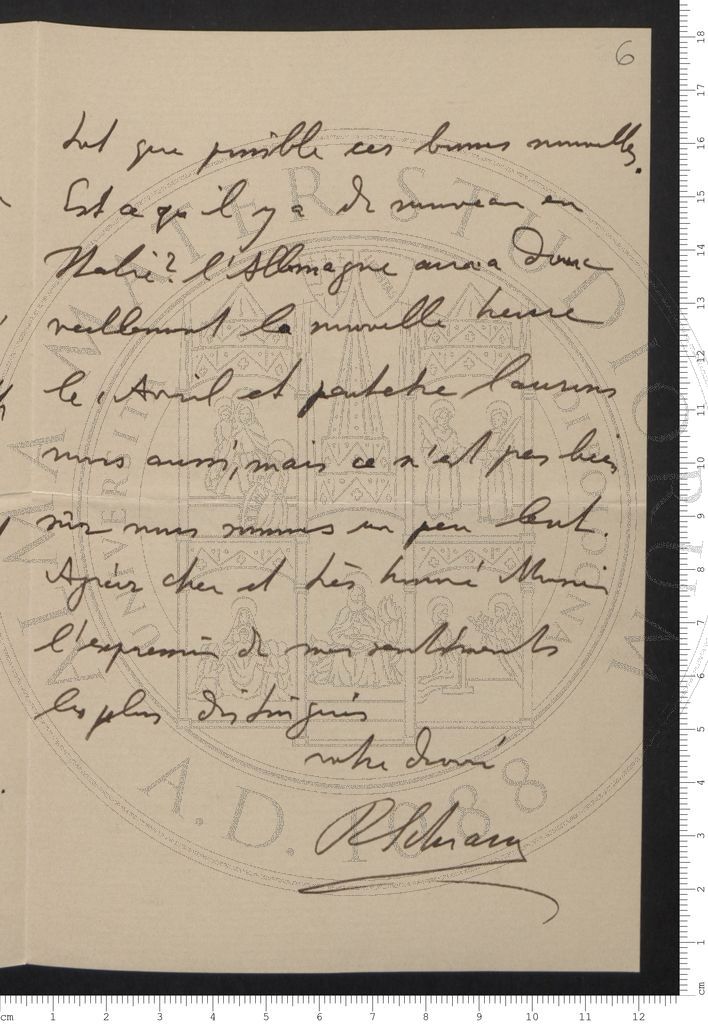 6
tot que possible ces bonnes nouvelles.
Est ce qu'il y a de nouveau en
Italie? l'Allemagne aura donc
reellement la nouvelle heure
le 1 Avril et peutetre l'aurons
nous aussi, mais ce n'est pas bien
sûr nous sommes un peu lent.
Agréez cher et très honoré Monsieur
l'expression de mes sentiments
les plus distingués
votre devoué
R Schram
ALMA MATER STUDIORUM
A.D. 1088